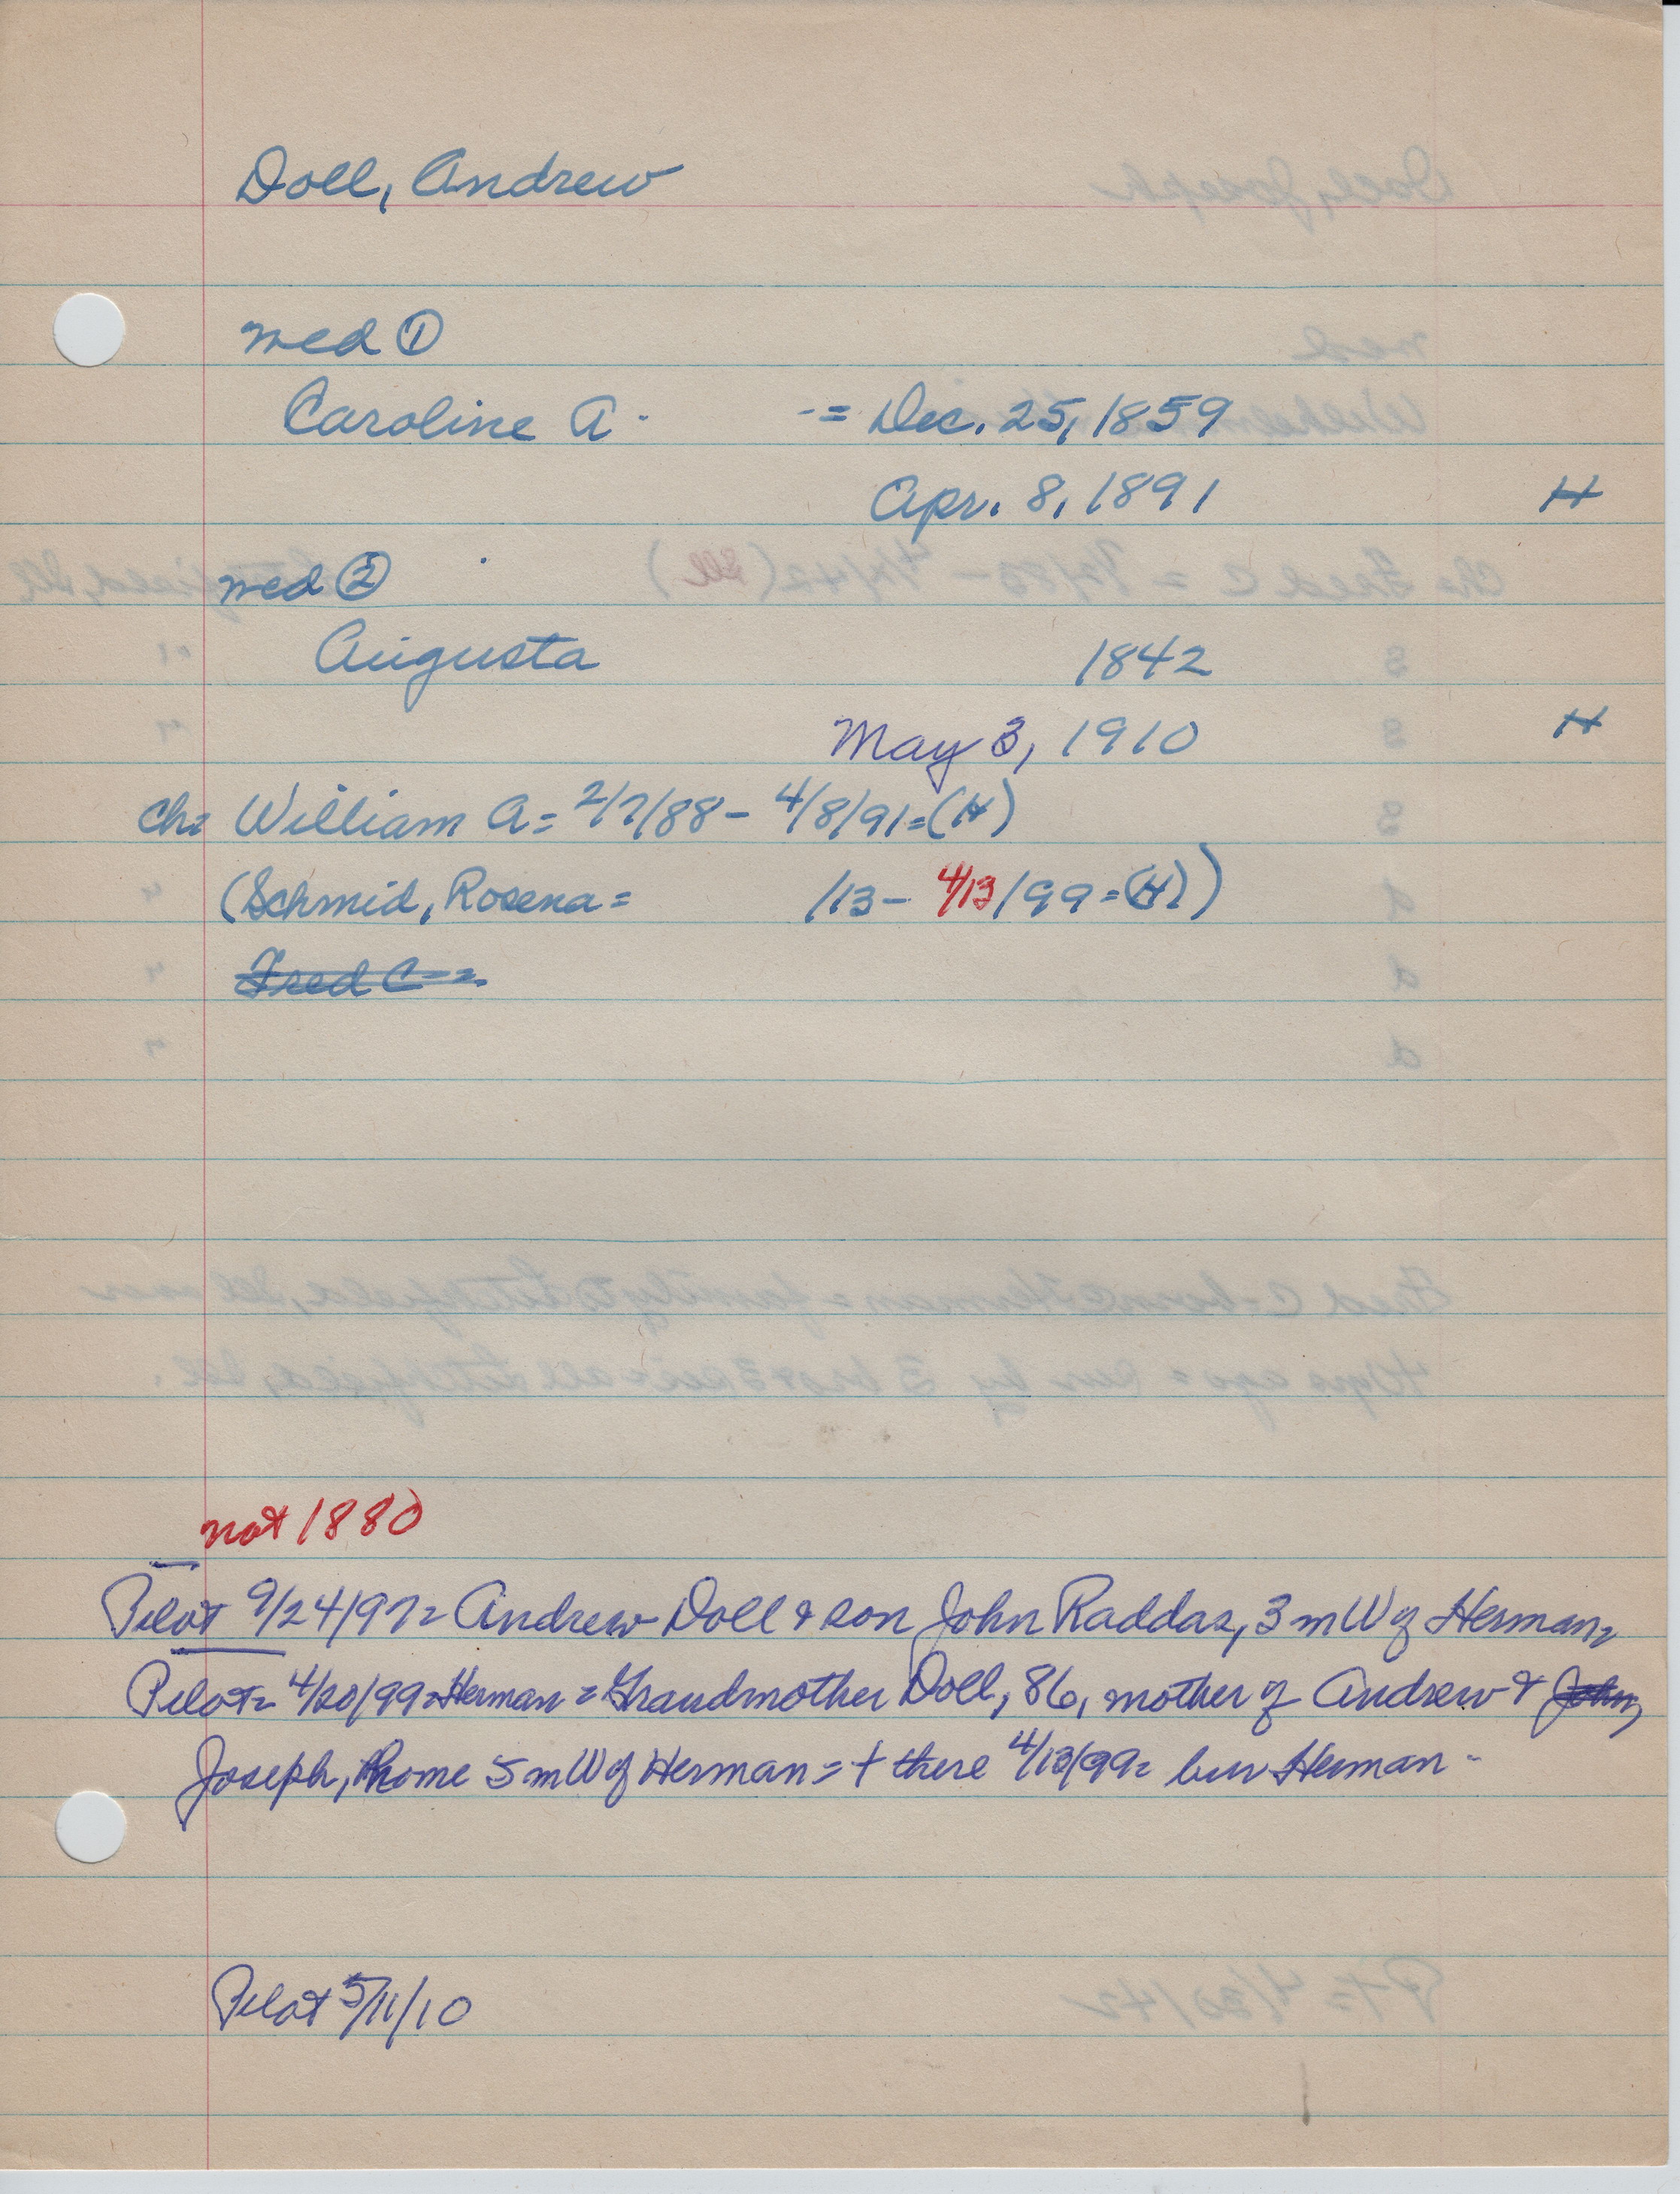 Doll, Andrew
med ①
Caroline A. -= Dec. 25, 1859
Apr. 8, 1891 H
med ②
Augusta 1842
May 3, 1910 H
Ch= William A= 2/7/88 - 4/8/91=(H)
(Schmid, Rosena= /13- 4/13/99=(H))
Fred C =
not 1880
Pilot 9/24/97= Andrew Doll & son John Raddaz, 3 m W of Herman,
Pilot= 4/20/99=Herman= Grandmother Doll, 86, mother of Andrew & John,
Joseph, home 5 m W of Herman= † there 4/13/99= bur Herman -
Pilot 5/11/10